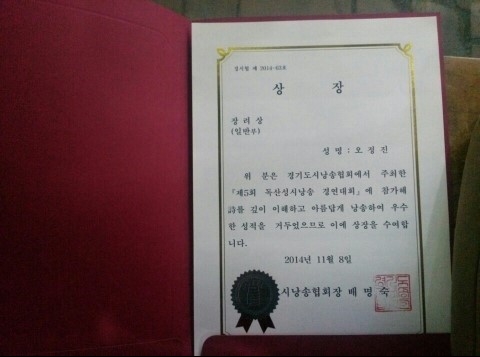 경시협 제 2014-03호
상 장
장려상
(일반부)
성명:오정진
위 분은 경기도시낭송협회에서 주최한
『제5회 독산성시낭송 경연대회』에 참가해
詩를 깊이 이해하고 아름답게 낭송하여 우수
한 성적을 거두었으므로 이에 상장을 수여합
니다.
2014년 11월 8일
시낭송협회장 배명숙